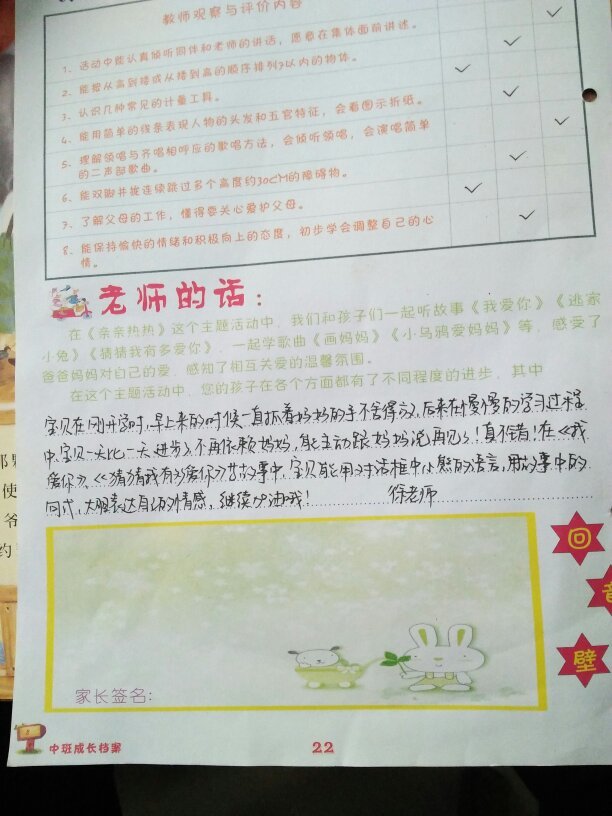 教师观察与评价内容
1、活动中能认真倾听同伴和老师的讲话，愿意在集体面前讲述。
2、能按从高到矮或从矮到高的顺序排列7以内的物体。
3、认识几种常见的计量工具。
4、能用简单的线条表现人物的头发和五官特征，会看图示折纸。
5、理解领唱与齐唱相呼应的歌唱方法，会倾听领唱，会演唱简单
的二声部歌曲。
6、能双脚并拢连续跳过多个高度约30CM的障碍物。
7、了解父母的工作，懂得要关心爱护父母。
8、能保持愉快的情绪和积极向上的态度，初步学会调整自己的心
情。
老师的话：
在《亲亲热热》这个主题活动中，我们和孩子们一起听故事《我爱你》《逃家
小兔》《猜猜我有多爱你》，一起学歌曲《画妈妈》《小乌鸦爱妈妈》等，感受了
爸爸妈妈对自己的爱，感知了相互关爱的温馨氛围。
在这个主题活动中，您的孩子在各个方面都有了不同程度的进步，其中
宝贝在刚开学时，早上来的时候一直抓着妈妈的手不舍得，后来在慢慢的学习过程
中，宝贝一天比一天进步了，不再依赖妈妈，能主动跟妈妈说再见了！真不错！在《我
爱你》、《猜猜我有多爱你》故事中，宝贝能用对话框中小熊的语言，用故事中的
句式，大胆表达自己的情感，继续加油哦！ 徐老师
回
音
壁
家长签名：
中班成长档案
22